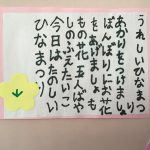 うれしいひなまつり
あかりをつけましょ
ぼんぼりにお花
をあげましょも
もの花 五人ばや
しのふえたいこ
今日はたのしい
ひなまつり